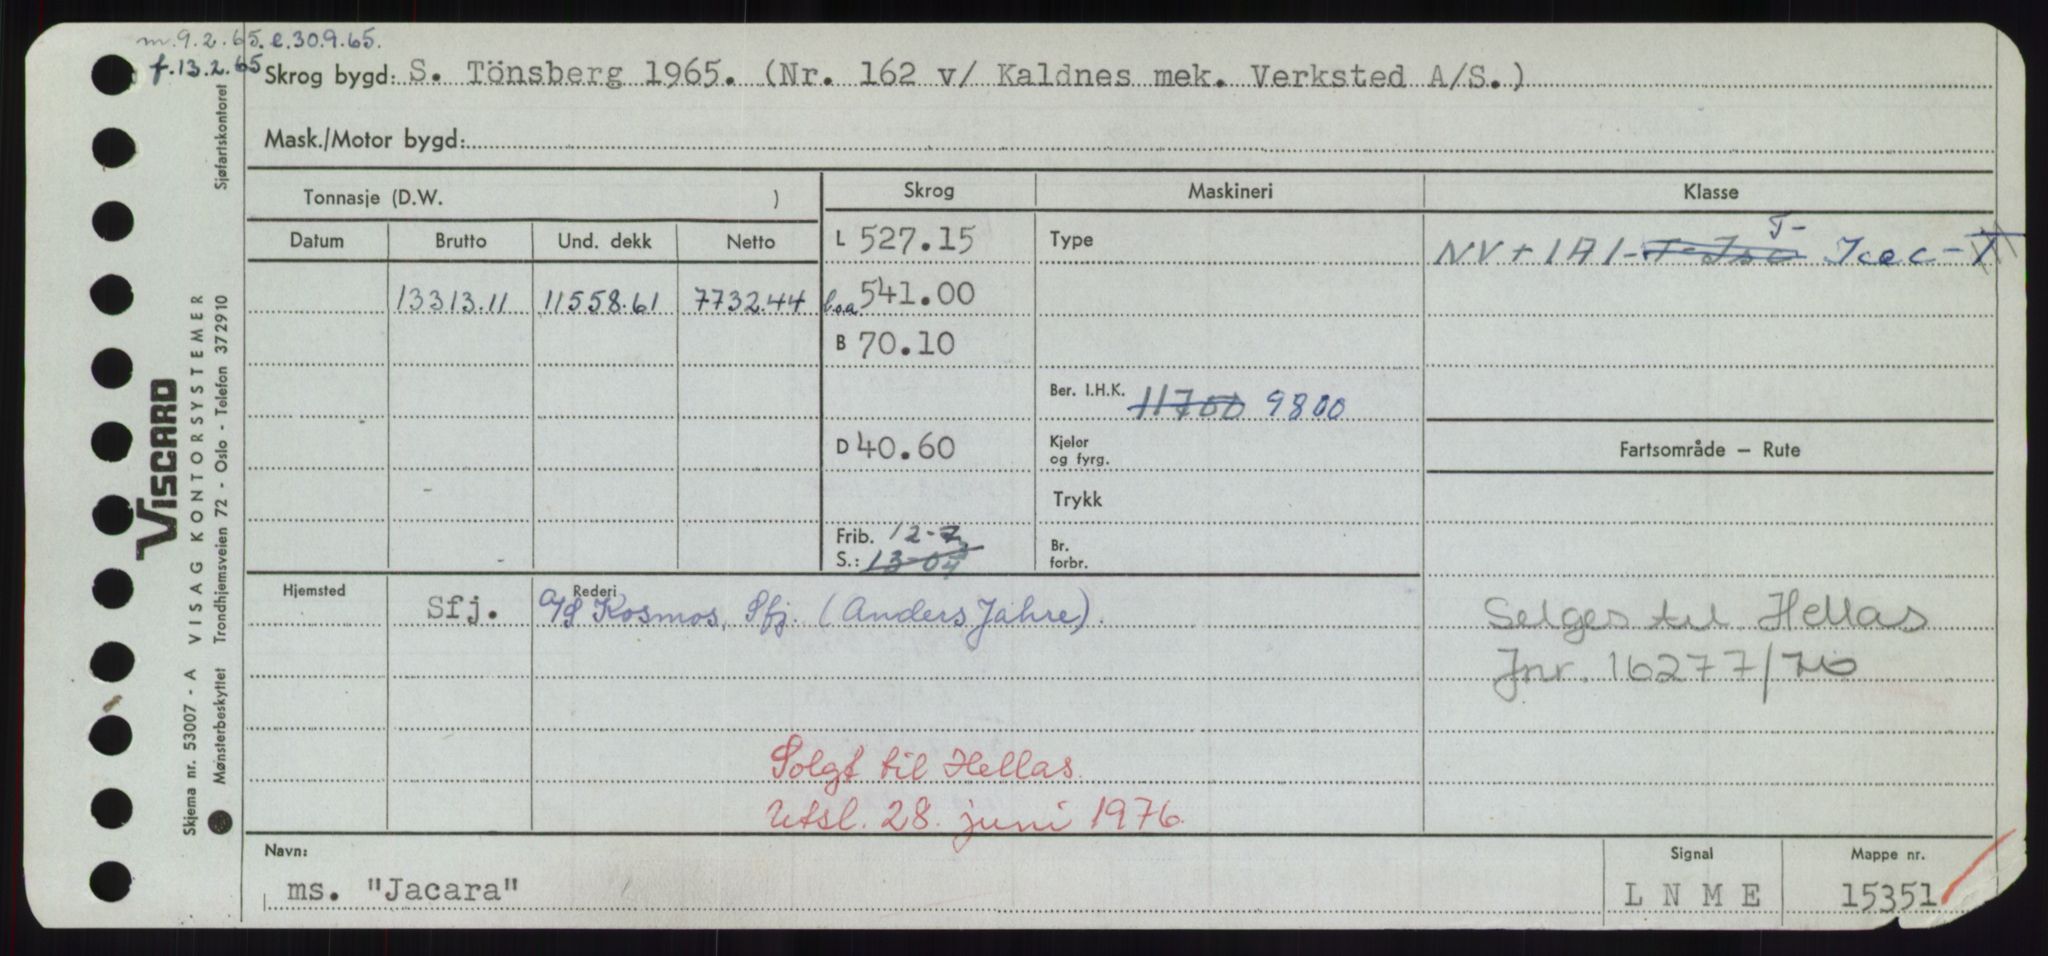 m.9.2.65. e.30.9.65.
f.13.2.65
Skrog bygd: S. Tönsberg 1965. (Nr. 162 v/ Kaldnes mek. Verksted A/S.)
Mask./Motor bygd:
Tonnasje (D.W. )
Skrog
Maskineri
Klasse
Datum Brutto Und. dekk Netto
L 527.15
Type
T-
NV + 1A1- Icec-
13313.11 11558.61 7732.44
b.o.a 541.00
B 70.10
Ber. I.H.K. 11700 9800
D 40.60
Kjeler
og fyrg.
Fartsområde — Rute
Trykk
Frib. 12-7
S.: 13-04
Br.
forbr.
Hjemsted
Rederi
Sfj.
A/S Kosmos, Sfj. (Anders Jahre).
Selges til Hellas
Jnr. 16277/76
Solgt til Hellas.
Utsl. 28. juni 1976.
Navn:
ms. "Jacara"
Signal
L N M E
Mappe nr.
15351
VISCARD
Skjema nr. 53007 - A VISAG KONTORSYSTEMER
Mønsterbeskyttet Trondhjemsveien 72 - Oslo - Telefon 372910 Sjøfartskontoret